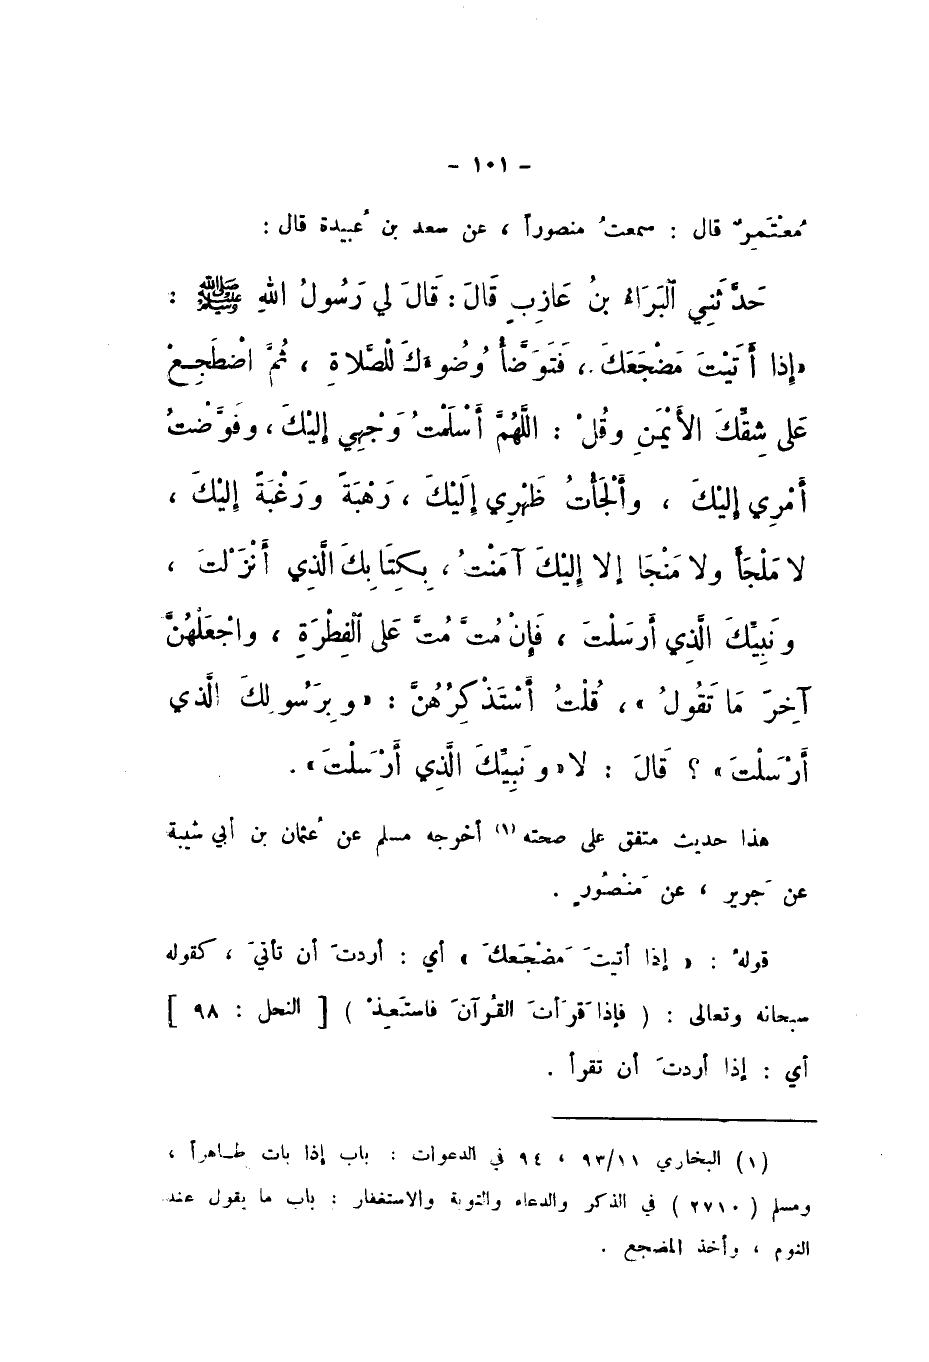 - ١٠١ -
مُعْتَمِرٌ قال : سمعتُ منصوراً ، عن سعد بن عُبيدة قال :
حَدَّثَنِي ٱلبَرَاءُ بنُ عَازِبٍ قَالَ : قَالَ لي رَسُولُ اللهِ ﷺ :
« إذا أَتَيْتَ مَضْجَعَكَ ، فَتَوَضَّأْ وُضُوءَكَ لْلصَّلاةِ ، ثُمَّ اضْطَجِعْ
عَلى شِقِّكَ الأَيْمَنِ وقُلْ : اللَّهُمَّ أَسْلَمْتُ وَجْهِي إِليْكَ ، وفَوَّضْتُ
أَمْرِي إِليْكَ ، وأَلْجَأْتُ ظَهْرِي إِلَيْكَ ، رَهْبَةً ورَغْبَةً إِليْكَ ،
لا مَلْجَأَ ولا مَنْجَا إلا إِليْكَ آمَنْتُ ، بِكِتَابِكَ الَّذِي أَنْزَلْتَ ،
ونَبِيِّكَ الَّذِي أَرسَلْتَ ، فَإِنْ مُتَّ مُتَّ عَلى ٱلفِطْرَةِ ، واجْعَلْهُنَّ
آخِرَ مَا تَقُولُ » ، قُلْتُ أَسْتَذْكِرُهُنَّ : « وبِرَسُولِكَ الَّذي
أَرْسَلْتَ » ؟ قَالَ : لا « ونَبِيِّكَ الَّذِي أَرْسَلْتَ » .
هذا حديث متفق على صحته (١) أخرجه مسلم عن عُثمان بن أبي شيبة
عن جَرير ، عن مَنْصُورٍ .
قولهُ : « إذا أتيتَ مَضْجَعكَ » أي : أردتَ أن تأتيَ ، كقوله
سبحانه وتعالى : ( فإذا قَرَأتَ القُرآنَ فاستَعِذْ ) [ النحل : ٩٨ ]
أي : إذا أردتَ أن تقرأ .
(١) البخاري ٩٣/١١ ، ٩٤ في الدعوات : باب إذا بات طاهراً ،
ومسلم ( ٢٧١٠ ) في الذكر والدعاء والتوبة والاستغفار : باب ما يقول عند
النوم ، وأخذ المضجع .